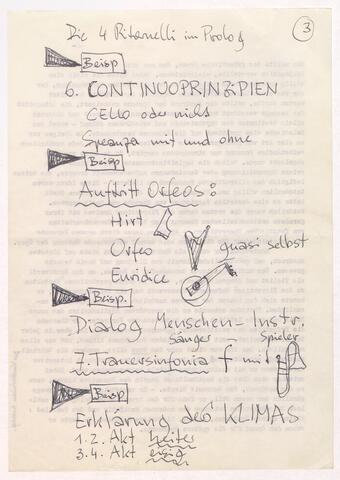 Die 4 Ritornelli im Prolog
3
Beisp
6. CONTINUOPRINZIPIEN
CELLO oder nicht
Speranza mit und ohne
Beisp
Auftritt Orfeos:
Hirt
Orfeo quasi selbst
Euridice
Beisp.
Dialog Menschen-Instr.
Sänger Spieler
7. Trauersinfonia f mit
Beisp
Erklärung des KLIMAS
1.2. Akt heiter
3.4. Akt eisig